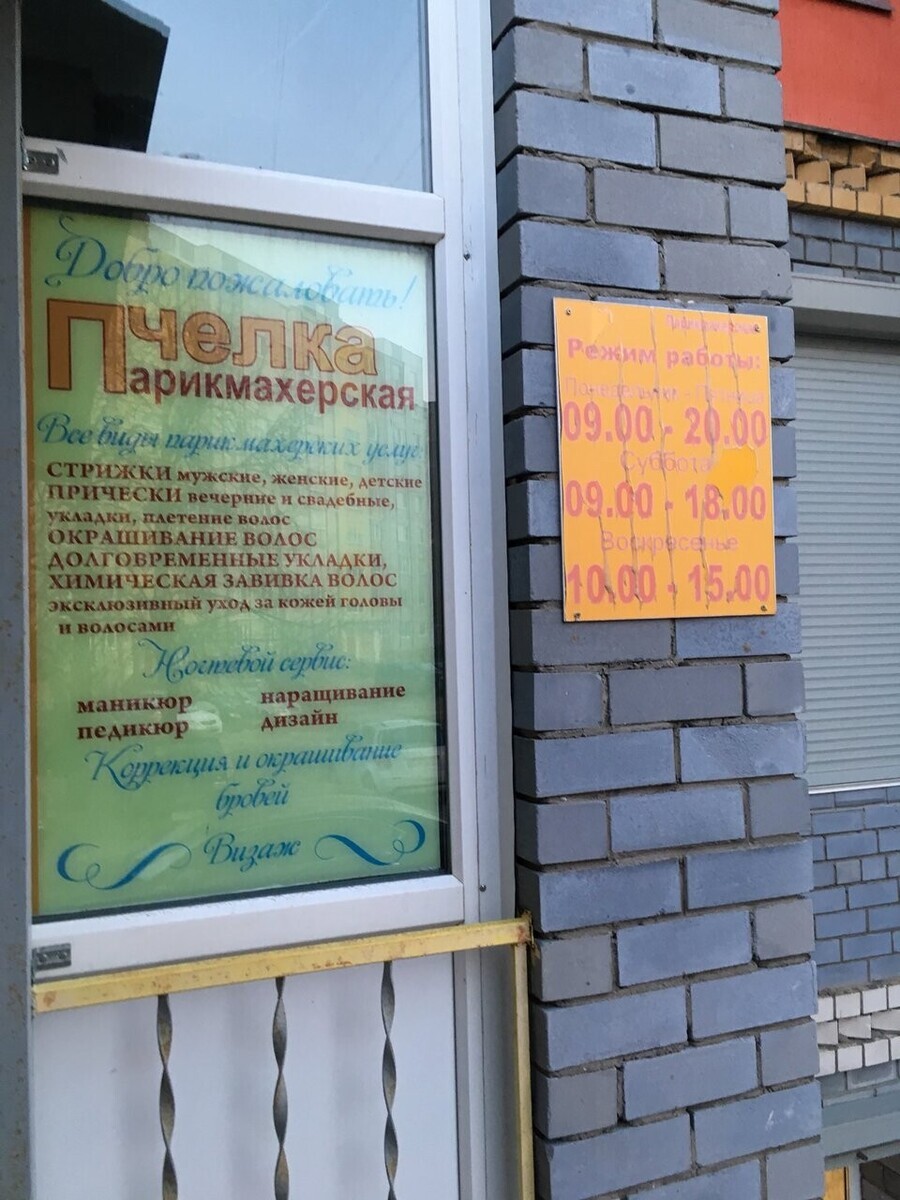 Добро пожаловать!
Пчелка
Парикмахерская
Все виды парикмахерских услуг:
СТРИЖКИ мужские, женские, детские
ПРИЧЕСКИ вечерние и свадебные,
укладки, плетение волос
ОКРАШИВАНИЕ ВОЛОС
ДОЛГОВРЕМЕННЫЕ УКЛАДКИ,
ХИМИЧЕСКАЯ ЗАВИВКА ВОЛОС
эксклюзивный уход за кожей головы
и волосами
Ногтевой сервис:
маникюр наращивание
педикюр дизайн
Коррекция и окрашивание
бровей
Визаж
Парикмахерская
Режим работы:
Понедельник - Пятница
09.00 - 20.00
Суббота
09.00 - 18.00
Воскресенье
10.00 - 15.00